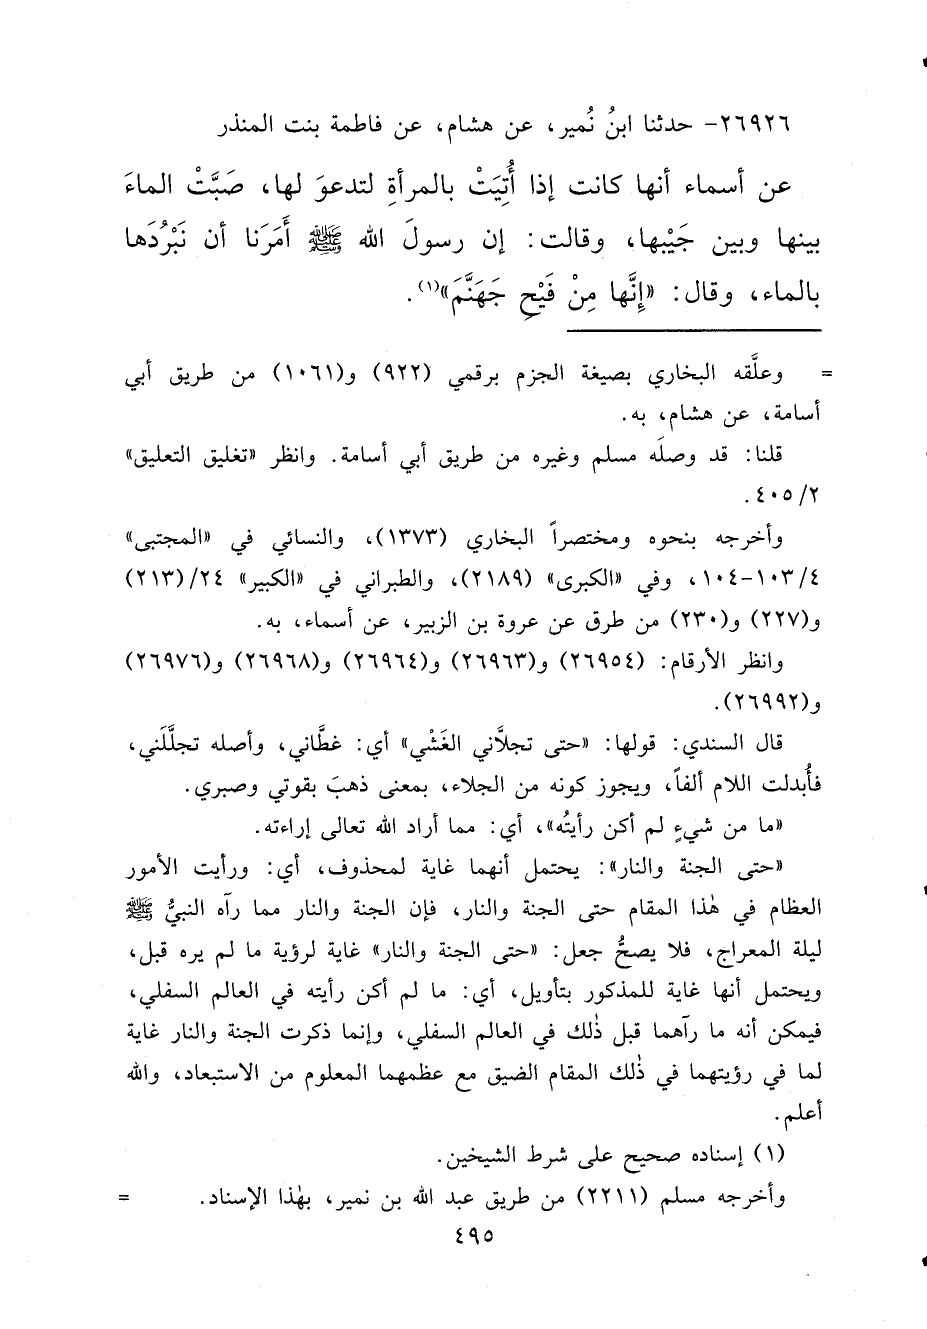 ٢٦٩٢٦- حدثنا ابنُ نُمير، عن هشام، عن فاطمة بنت المنذر
عن أسماء أنها كانت إذا أُتِيَتْ بالمرأةِ لتدعوَ لها، صَبَّتْ الماءَ
بينها وبين جَيْبها، وقالت: إن رسولَ الله ﷺ أَمَرَنا أن نَبْرُدَها
بالماء، وقال: «إِنَّها مِنْ فَيْحِ جَهَنَّمَ»(١).
= وعلَّقه البخاري بصيغة الجزم برقمي (٩٢٢) و(١٠٦١) من طريق أبي
أسامة، عن هشام، به.
قلنا: قد وصلَه مسلم وغيره من طريق أبي أسامة. وانظر «تغليق التعليق»
٤٠٥/٢.
وأخرجه بنحوه ومختصراً البخاري (١٣٧٣)، والنسائي في «المجتبى»
١٠٣/٤-١٠٤، وفي «الكبرى» (٢١٨٩)، والطبراني في «الكبير» ٢٤/(٢١٣)
و(٢٢٧) و(٢٣٠) من طرق عن عروة بن الزبير، عن أسماء، به.
وانظر الأرقام: (٢٦٩٥٤) و(٢٦٩٦٣) و(٢٦٩٦٤) و(٢٦٩٦٨) و(٢٦٩٧٦)
و(٢٦٩٩٢).
قال السندي: قولها: «حتى تجلاَّني الغَشْي» أي: غطَّاني، وأصله تجلَّلَني،
فأُبدلت اللام ألفاً، ويجوز كونه من الجلاء، بمعنى ذهبَ بقوتي وصبري.
«ما من شيءٍ لم أكن رأيتُه»، أي: مما أراد الله تعالى إراءته.
«حتى الجنة والنار»: يحتمل أنهما غاية لمحذوف، أي: ورأيت الأمور
العظام في هٰذا المقام حتى الجنة والنار، فإن الجنة والنار مما رآه النبيُّ ﷺ
ليلة المعراج، فلا يصحُّ جعل: «حتى الجنة والنار» غاية لرؤية ما لم يره قبل،
ويحتمل أنها غاية للمذكور بتأويل، أي: ما لم أكن رأيته في العالم السفلي،
فيمكن أنه ما رآهما قبل ذٰلك في العالم السفلي، وإنما ذكرت الجنة والنار غاية
لما في رؤيتهما في ذٰلك المقام الضيق مع عظمهما المعلوم من الاستبعاد، والله
أعلم.
(١) إسناده صحيح على شرط الشيخين.
وأخرجه مسلم (٢٢١١) من طريق عبد الله بن نمير، بهٰذا الإسناد. =
٤٩٥